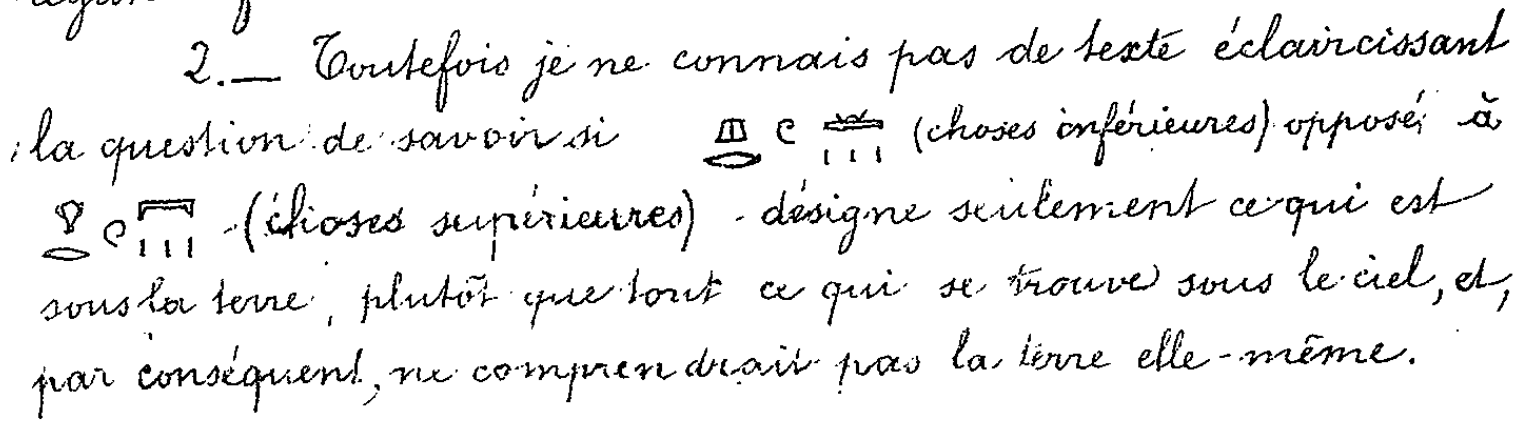 2.— Toutefois je ne connais pas de texte éclaircissant
la question de savoir si (choses inférieures) opposé à
(choses supérieures) désigne seulement ce qui est
sous la terre, plutôt que tout ce qui se trouve sous le ciel, et,
par conséquent, ne comprendrait pas la terre elle-même.